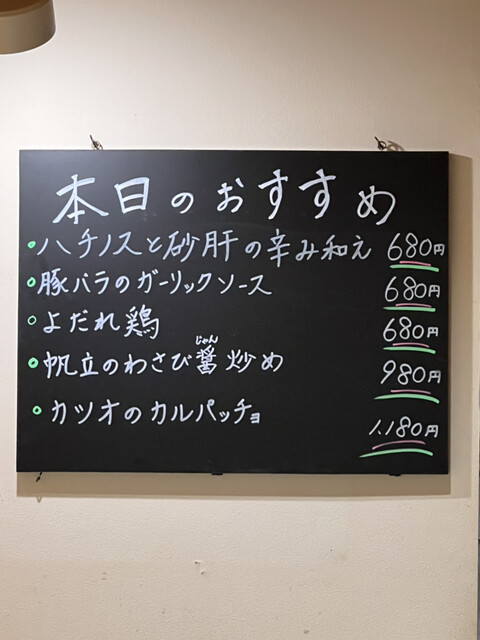 本日のおすすめ
ハチノスと砂肝の辛み和え 680円
豚バラのガーリックソース 680円
よだれ鶏 680円
じゃん
帆立のわさび醤炒め 980円
カツオのカルパッチョ 1.180円